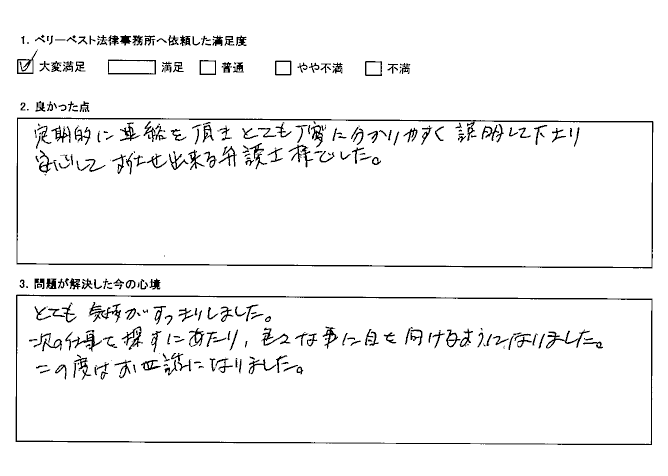 1. ベリーベスト法律事務所へ依頼した満足度
大変満足 満足 普通 やや不満 不満
2. 良かった点
定期的に連絡を頂き とても丁寧に分かりやすく 説明して下さり
安心して まかせ出来る弁護士様でした。
3. 問題が解決した今の心境
とても 気持がすっきりしました。
次の仕事を探すにあたり、色々な事に目を向けるようになりました。
この度はお世話になりました。